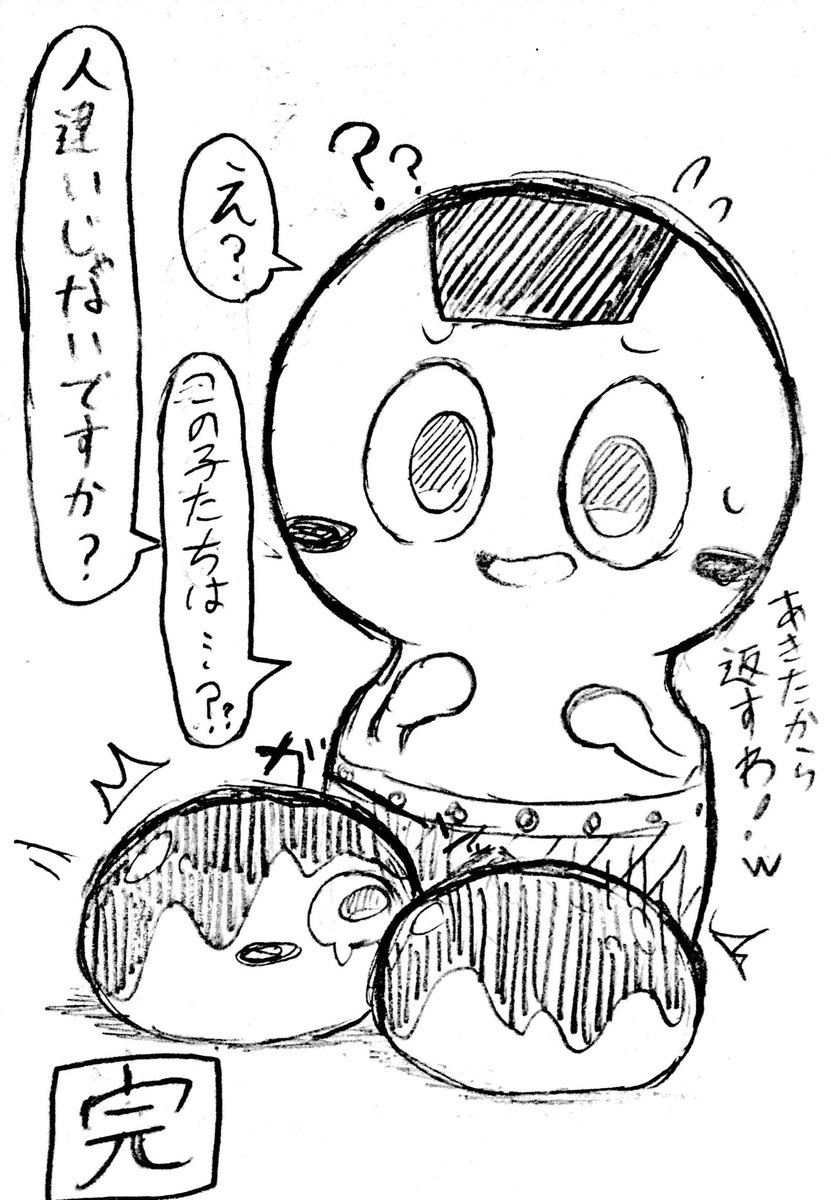 ??
え?
の子たちは…??
人違いじゃないですか?
あきたから
返すわ!w
ガ
完